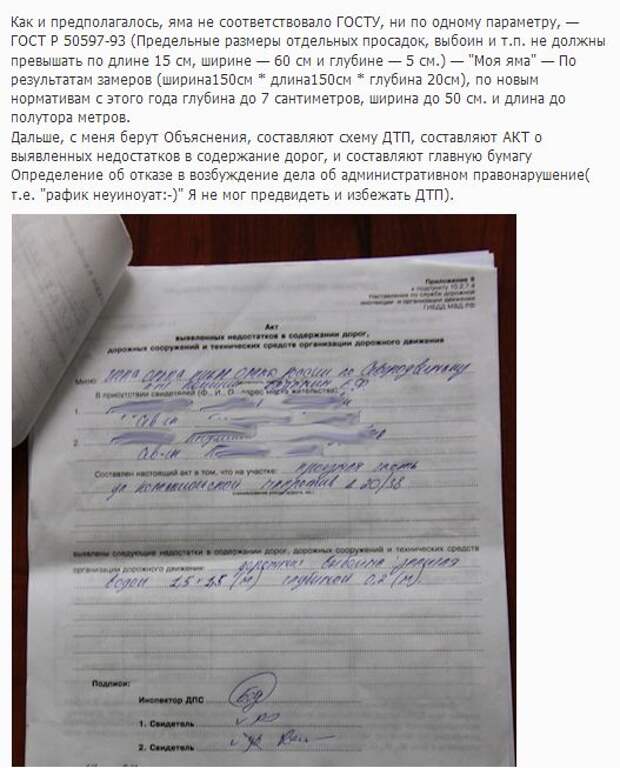 Как и предполагалось, яма не соответствовало ГОСТУ, ни по одному параметру, —
ГОСТ Р 50597-93 (Предельные размеры отдельных просадок, выбоин и т.п. не должны
превышать по длине 15 см, ширине — 60 см и глубине — 5 см.) — "Моя яма" — По
результатам замеров (ширина150см * длина150см * глубина 20см), по новым
нормативам с этого года глубина до 7 сантиметров, ширина до 50 см. и длина до
полутора метров.
Дальше, с меня берут Объяснения, составляют схему ДТП, составляют АКТ о
выявленных недостатков в содержание дорог, и составляют главную бумагу
Определение об отказе в возбуждение дела об административном правонарушение(
т.е. "рафик неуиноуат:-)" Я не мог предвидеть и избежать ДТП).
Приложение
к подпункту 10.2.7.4
Наставления по службе дорожной
инспекции и организации движения
ГИБДД МВД РФ
Акт
выявленных недостатков в содержании дорог,
дорожных сооружений и технических средств организации дорожного движения
Мною, России по Северодвинску
В присутствии свидетелей (Ф., И., О., адрес места жительства)
1.
Сев-ск
2.
Сев-ск
Составлен настоящий акт в том, что на участке: проезжая часть
ул напротив д 20/38
выявлены следующие недостатки в содержании дорог, дорожных сооружений и технических средств
организации дорожного движения: дорожная выбоина
водой (м) глубиной 0,2 (м)
Подписи:
Инспектор ДПС
1. Свидетель
2. Свидетель